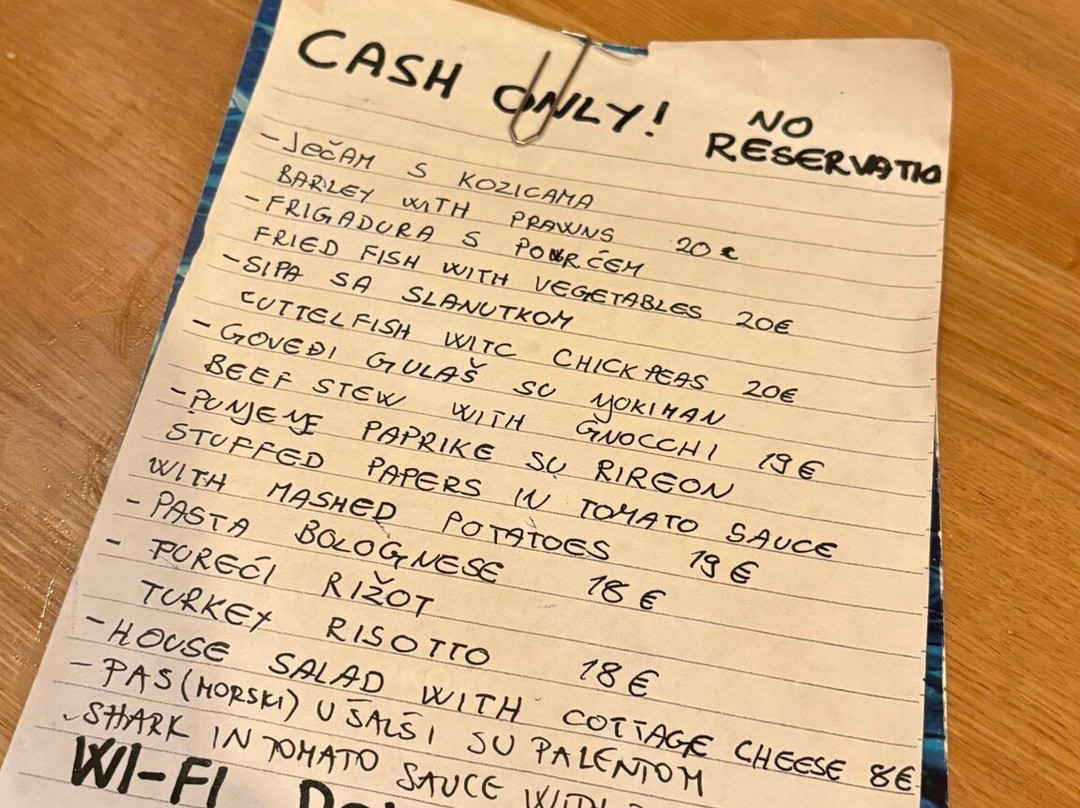 CASH ONLY! NO
RESERVATIO
- JEČAM S KOZICAMA
BARLEY WITH PRAWNS 20 €
- FRIGADURA S POVRĆEM
FRIED FISH WITH VEGETABLES 20€
- SIPA SA SLANUTKOM
CUTTELFISH WITC CHICKPEAS 20€
- GOVEĐI GULAŠ SU NJOKIMAN
BEEF STEW WITH GNOCCHI 19 €
- PUNJENE PAPRIKE SU RIREON
STUFFED PAPERS IN TOMATO SAUCE
WITH MASHED POTATOES 19 €
- PASTA BOLOGNESE 18 €
- PUREĆI RIŽOT
TURKEY RISOTTO 18 €
- HOUSE SALAD WITH COTTAGE CHEESE 8€
- PAS (MORSKI) U ŠALŠI SU PALENTOM
SHARK IN TOMATO SAUCE WITH
WI-FI